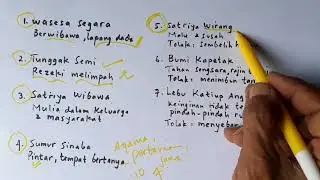 1. wasesa segara
Berwibawa, lapang dada
2. Tunggak Semi
Rezeki melimpah
3. Satriya Wibawa
Mulia dalam Keluarga
2 masyarakat
4. Sumur Sinaba
Pintar, tempat bertanya.
Agama,
pertanian
10 4
5. Satriya Wirang
Malu & Susah
Tolak: Sembelih
6. Bumi Kapatak
Tahan sengsara, rajin
Tolak: menimbun tan
7. Lebu Katiup Ang
Keinginan tidak te
pindah-pindah ru
Tolak: menyebar